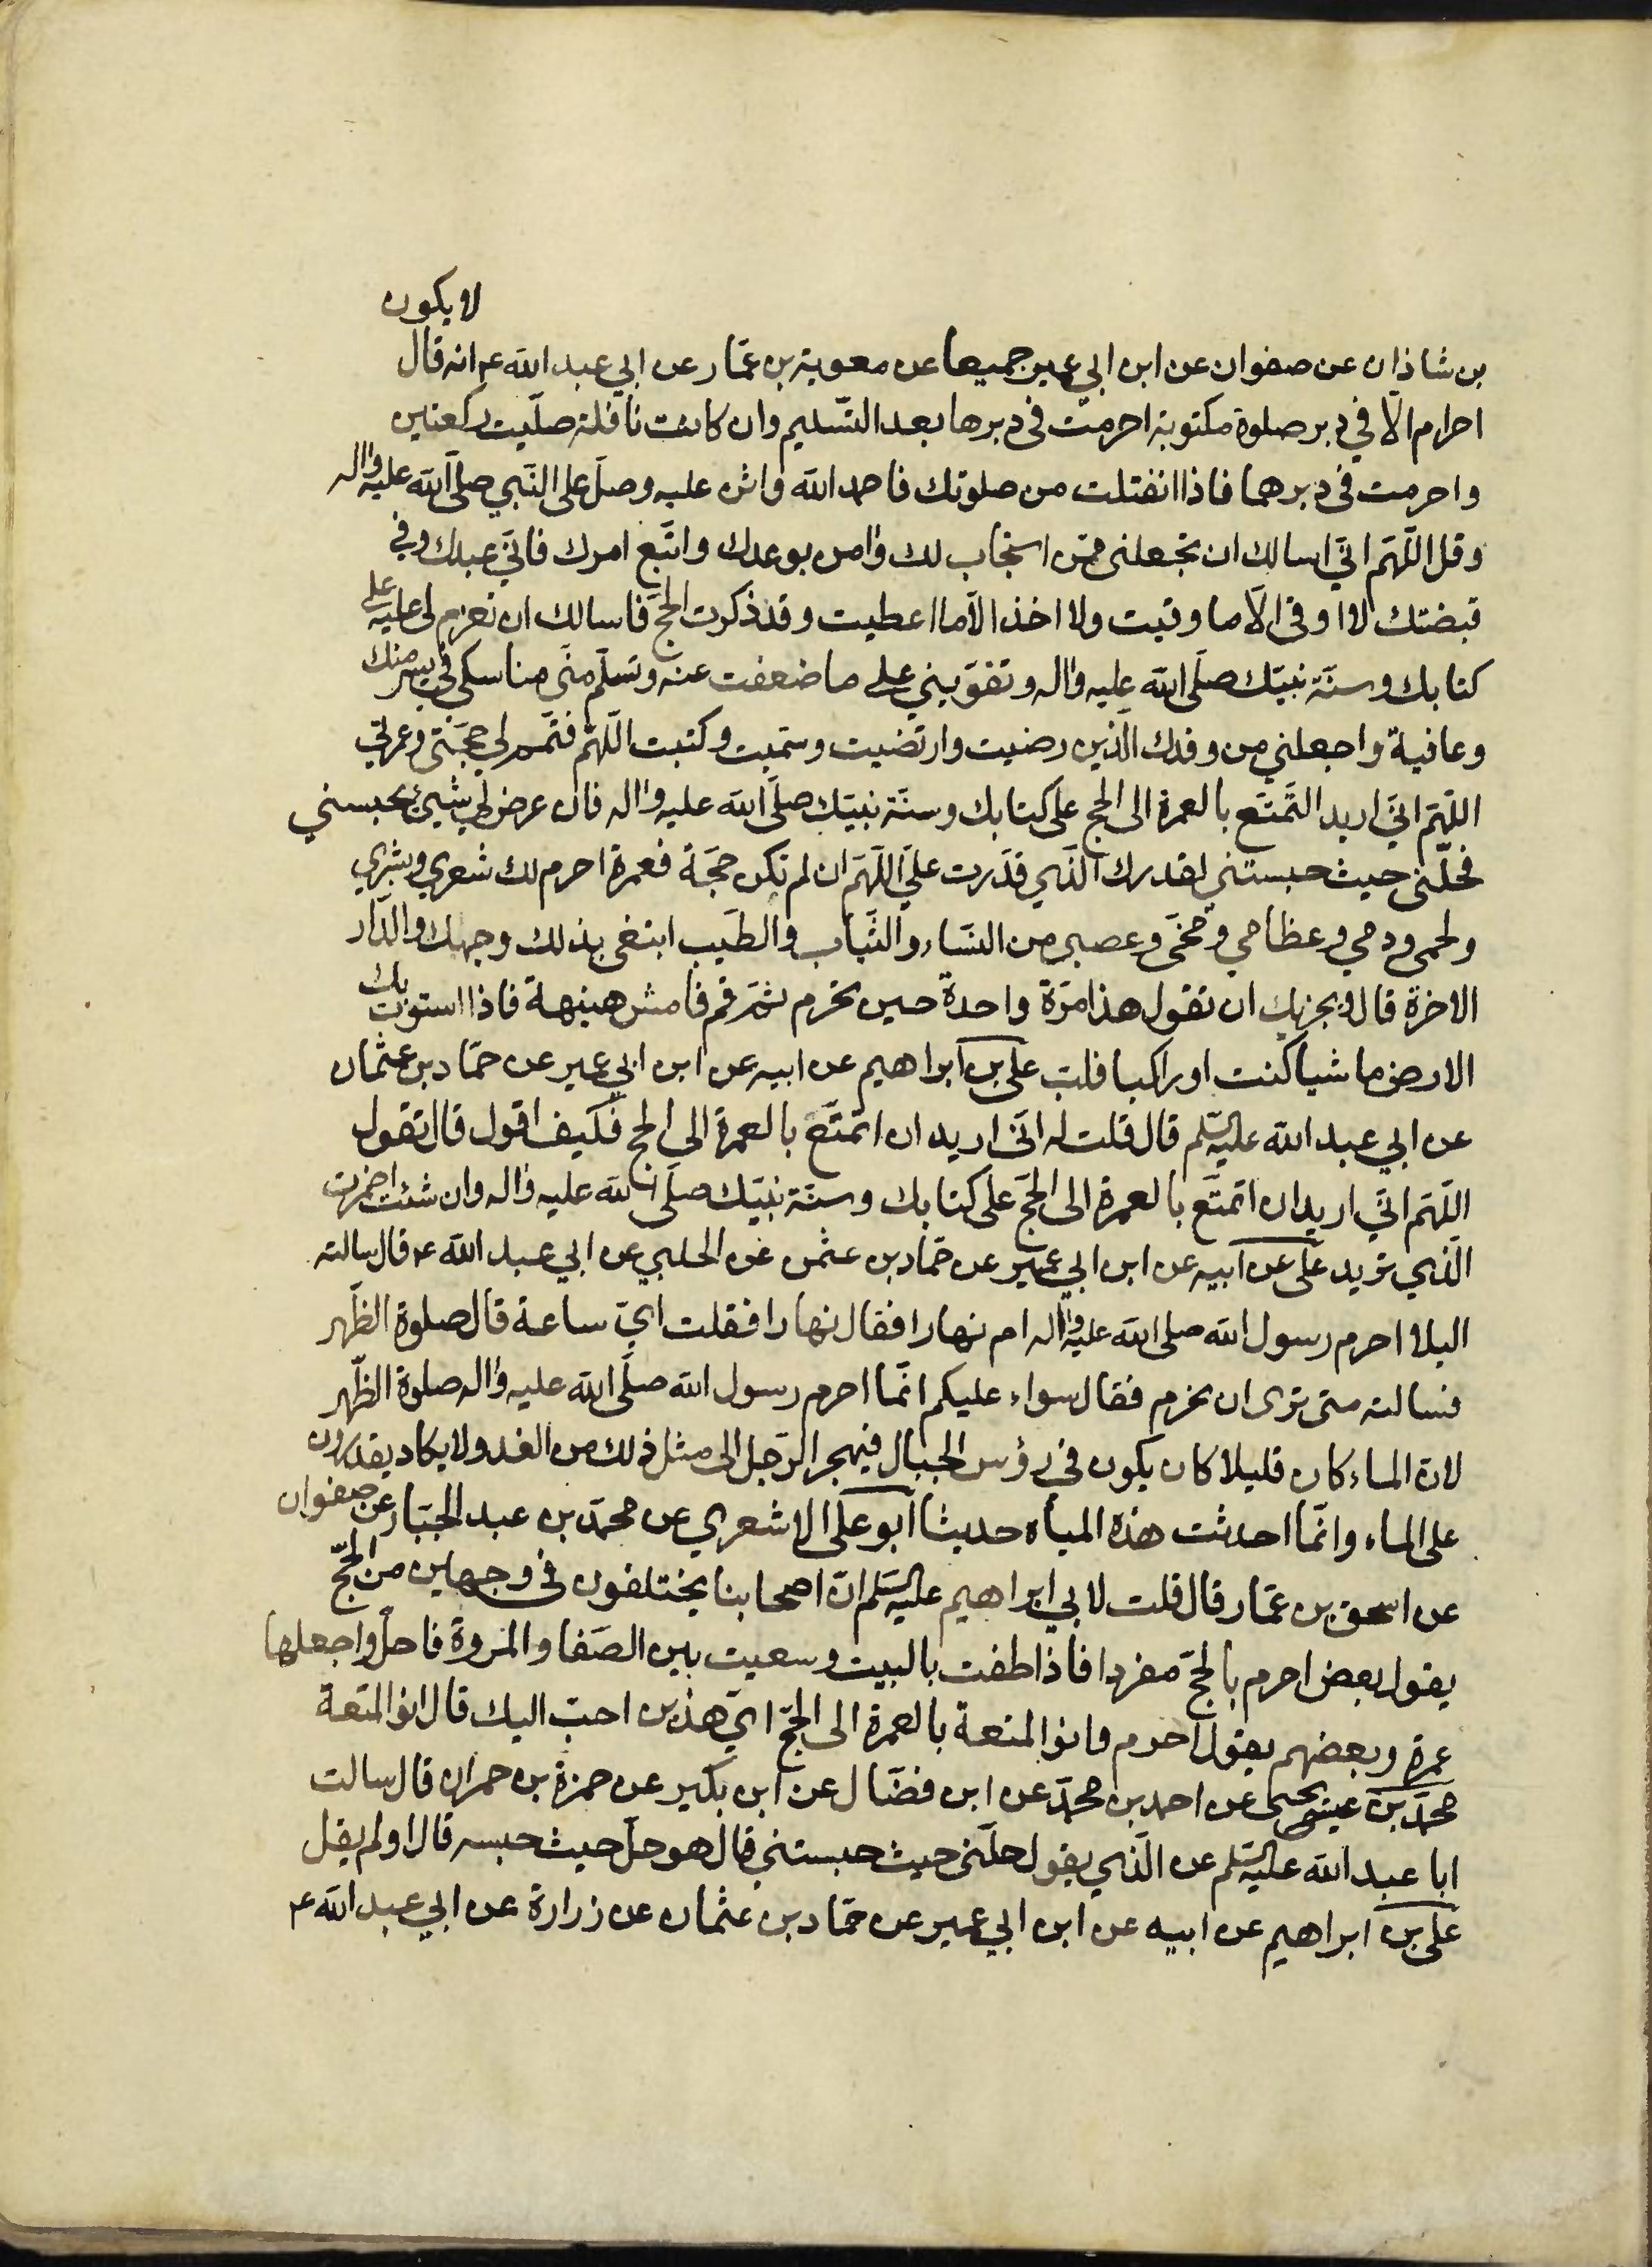 لا يكون
بن شاذان عن صفوان عن ابن ابي عمير جميعا عن معوية بن عمّار عن ابي عبد الله ع انه قال
احرام الّا في دبر صلوة مكتوبة احرمت في دبرها بعد التّسليم وان كانت نافلة صلّيت ركعتين
واحرمت في دبرهما فاذا انفتلت من صلوتك فاحمد الله واثن عليه وصلّ على النّبي صلّى الله عليه واله
وقل اللّهم انّي اسالك ان تجعلني ممّن استجاب لك وامن بوعدك واتّبع امرك فانّي عبدك وفي
قبضتك لا اوقى الّا ما وقيت ولا اخذ الّا ما اعطيت وقد ذكرت الحجّ فاسالك ان تعزم لي عليه على
كتابك وسنّة نبيّك صلّى الله عليه واله وتقوّيني على ما ضعفت عنه وتسلّم منّي مناسكي في يسر منك
وعافية واجعلني من وفدك الّذين رضيت وارتضيت وسمّيت وكتبت اللّهم فتمّم لي حجّتي وعمرتي
اللّهم انّي اريد التّمتّع بالعمرة الى الحج على كتابك وسنّة نبيّك صلّى الله عليه واله فان عرض لي شيئ يحبسني
فحلّني حيث حبستني لقدرك الّذي قدّرت عليّ اللّهم ان لم تكن حجّة فعمرة احرم لك شعري وبشري
ولحمي ودمي وعظامي ومخّي وعصبي من النّساء والثّياب والطّيب ابتغى بذلك وجهك والدّار
الاخرة قال ويجزيك ان تقول هذا مرّة واحدة حين تحرم ثمّ قم فامش هنيهة فاذا استوت بك
الارض ماشيا كنت او راكبا فلبّ علي بن ابراهيم عن ابيه عن ابن ابي عمير عن حمّاد بن عثمان
عن ابي عبد الله عليه السّلم قال قلت له انّي اريد ان اتمتّع بالعمرة الى الحج فكيف اقول قال تقول
اللّهم انّي اريد ان اتمتّع بالعمرة الى الحجّ على كتابك وسنّة نبيّك صلّى الله عليه واله وان شئت اضمرت
الّذي تريد علي عن ابيه عن ابن ابي عمير عن حمّاد بن عثمن عن الحلبي عن ابي عبد الله ع قال سالته
اليلا احرم رسول الله صلى الله عليه واله ام نهارا فقال نهارا فقلت ايّ ساعة قال صلوة الظّهر
فسالته متى ترى ان نحرم فقال سواء عليكم انّما احرم رسول الله صلّى الله عليه واله صلوة الظّهر
لانّ الماء كان قليلا كان يكون في رؤس الجبال فيهجر الرّجل الى مثل ذلك من الغد ولا يكاد يقدرون
على الماء وانّما احدثت هذه المياه حديثا ابو علي الاشعري عن محمّد بن عبد الجبّار عن صفوان
عن اسحق بن عمّار قال قلت لابي ابراهيم عليه السّلم انّ اصحابنا يختلفون في وجهين من الحجّ
يقول بعض احرم بالحجّ مفردا فاذا طفت بالبيت وسعيت بين الصّفا والمروة فاحلّ واجعلها
عمرة وبعضهم يقول احرم وانو المتعة بالعمرة الى الحجّ ايّ هذين احبّ اليك قال انو المتعة
محمّد بن عيسى يحيى عن احمد بن محمّد عن ابن فضّال عن ابن بكير عن حمزة بن حمران قال سالت
ابا عبد الله عليه السّلم عن الّذي يقول حلّني حيث حبستني قال هو حلّ حيث حبسه قال اولم يقل
علي بن ابراهيم عن ابيه عن ابن ابي عمير عن حمّاد بن عثمان عن زرارة عن ابي عبد الله ع